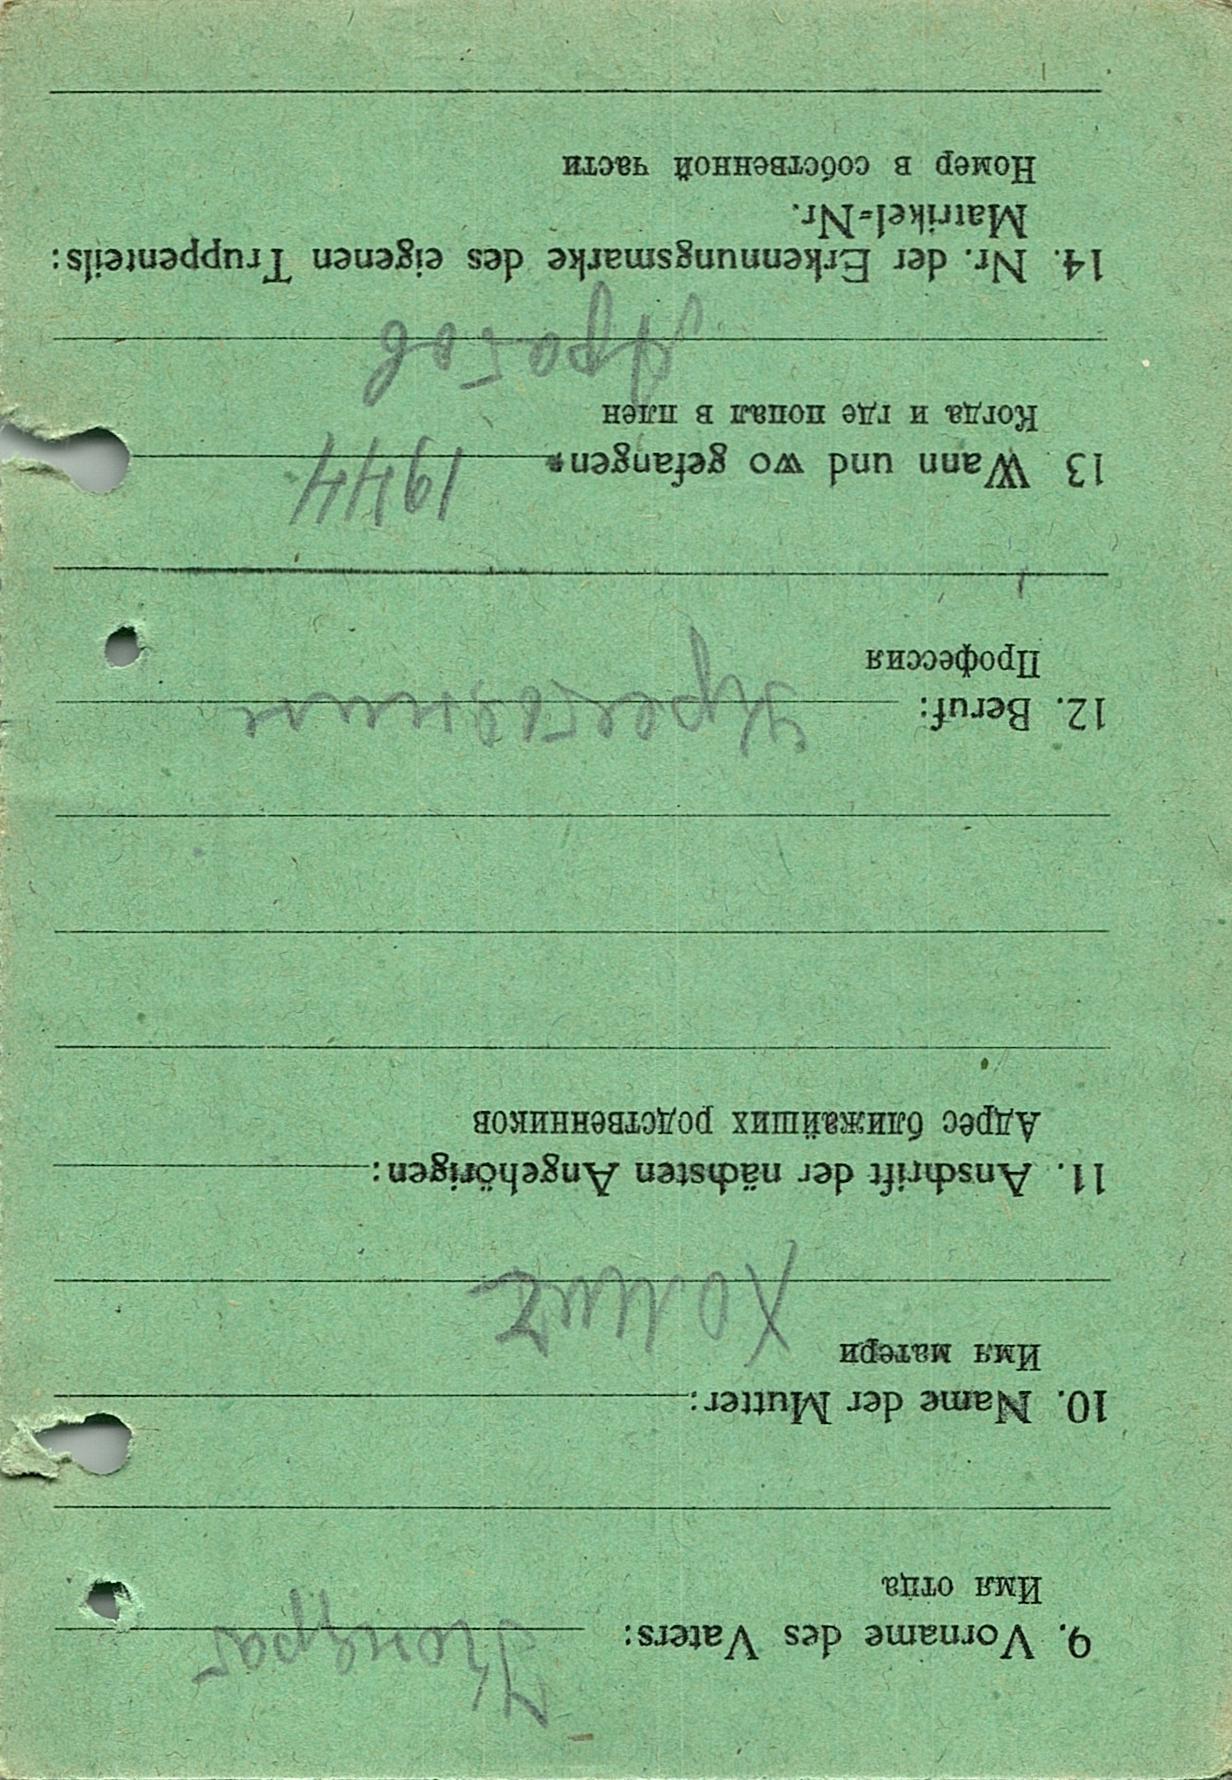 9. Vorname des Vaters: Кондрат
Имя отца
10. Name der Mutter:
Имя матери
11. Anschrift der nächsten Angehörigen:
Адрес ближайших родственников
12. Beruf:
Профессия
13 Wann und wo gefangen: 1944
Когда и где попал в плен
14. Nr. der Erkennungsmarke des eigenen Truppenteils:
Matrikel=Nr.
Номер в собственной части